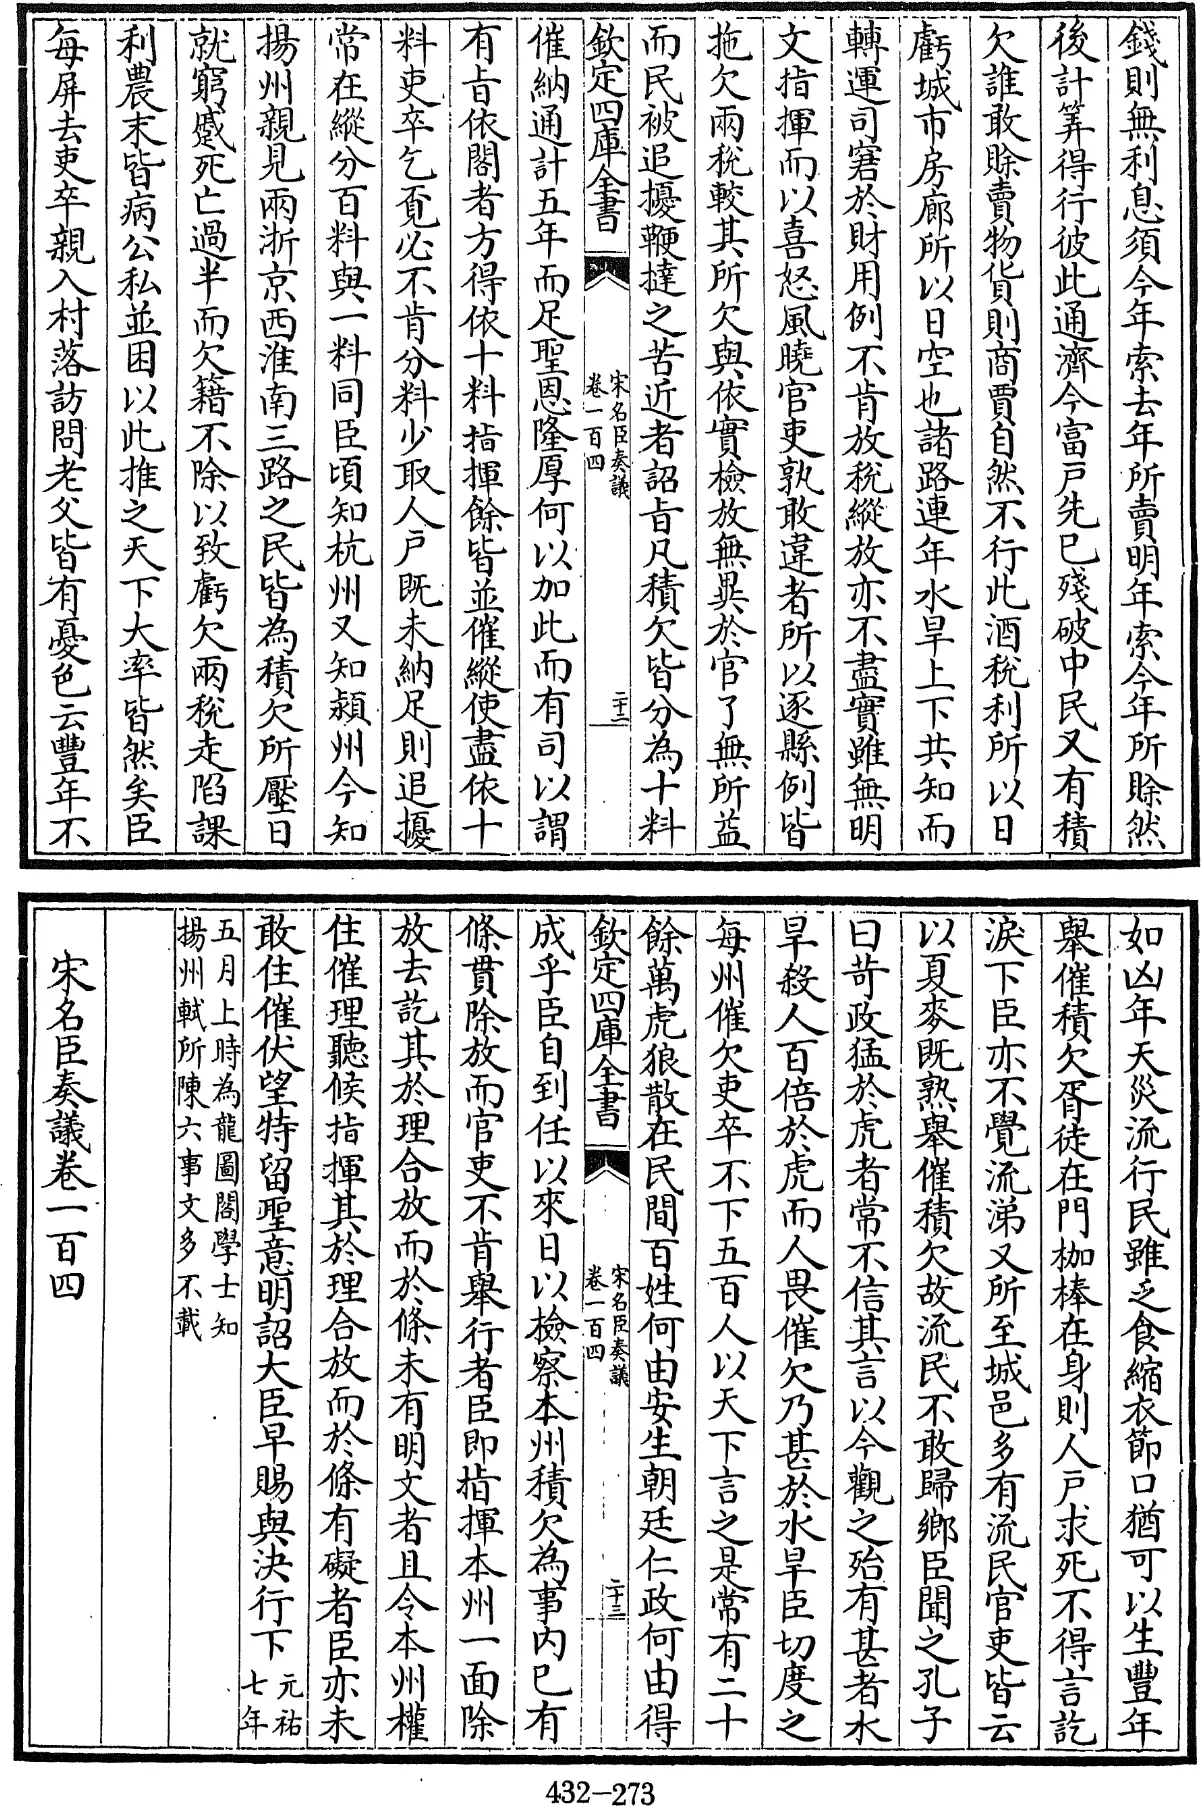 錢則無利息須今年索去年所賣明年索今年所賒然
後計筭得行彼此通濟今富戸先已殘破中民又有積
欠誰敢賒賣物貨則商賈自然不行此酒稅利所以日
虧城市房廊所以日空也諸路連年水旱上下共知而
轉運司窘於財用例不肯放稅縱放亦不盡實雖無明
文指揮而以喜怒風曉官吏孰敢違者所以逐縣例皆
拖欠兩稅較其所欠與依實檢放無異於官了無所益
而民被追擾鞭撻之苦近者詔旨凡積欠皆分為十料
欽定四庫全書
宋名臣奏議
卷一百四
二十二
催納通計五年而足聖恩隆厚何以加此而有司以謂
有旨依閣者方得依十料指揮餘皆並催縱使盡依十
料吏卒乞覔必不肯分料少取人戸既未納足則追擾
常在縱分百料與一料同臣頃知杭州又知潁州今知
揚州親見兩浙京西淮南三路之民皆為積欠所壓日
就窮蹙死亡過半而欠籍不除以致虧欠兩稅走陷課
利農末皆病公私並困以此推之天下大率皆然矣臣
每屏去吏卒親入村落訪問老父皆有憂色云豐年不
如凶年天災流行民雖乏食縮衣節口猶可以生豐年
舉催積欠胥徒在門枷棒在身則人戸求死不得言訖
淚下臣亦不覺流涕又所至城邑多有流民官吏皆云
以夏麥既熟舉催積欠故流民不敢歸鄉臣聞之孔子
曰苛政猛於虎者常不信其言以今觀之殆有甚者水
旱殺人百倍於虎而人畏催欠乃甚於水旱臣切度之
每州催欠吏卒不下五百人以天下言之是常有二十
餘萬虎狼散在民間百姓何由安生朝廷仁政何由得
欽定四庫全書
宋名臣奏議
卷一百四
二十三
成乎臣自到任以來日以檢察本州積欠為事内已有
條貫除放而官吏不肯舉行者臣即指揮本州一面除
放去訖其於理合放而於條未有明文者且令本州權
住催理聽候指揮其於理合放而於條有礙者臣亦未
敢住催伏望特留聖意明詔大臣早賜與決行下 元祐
七年
五月上時為龍圖閣學士知
揚州軾所陳六事文多不載
宋名臣奏議卷一百四
432-273